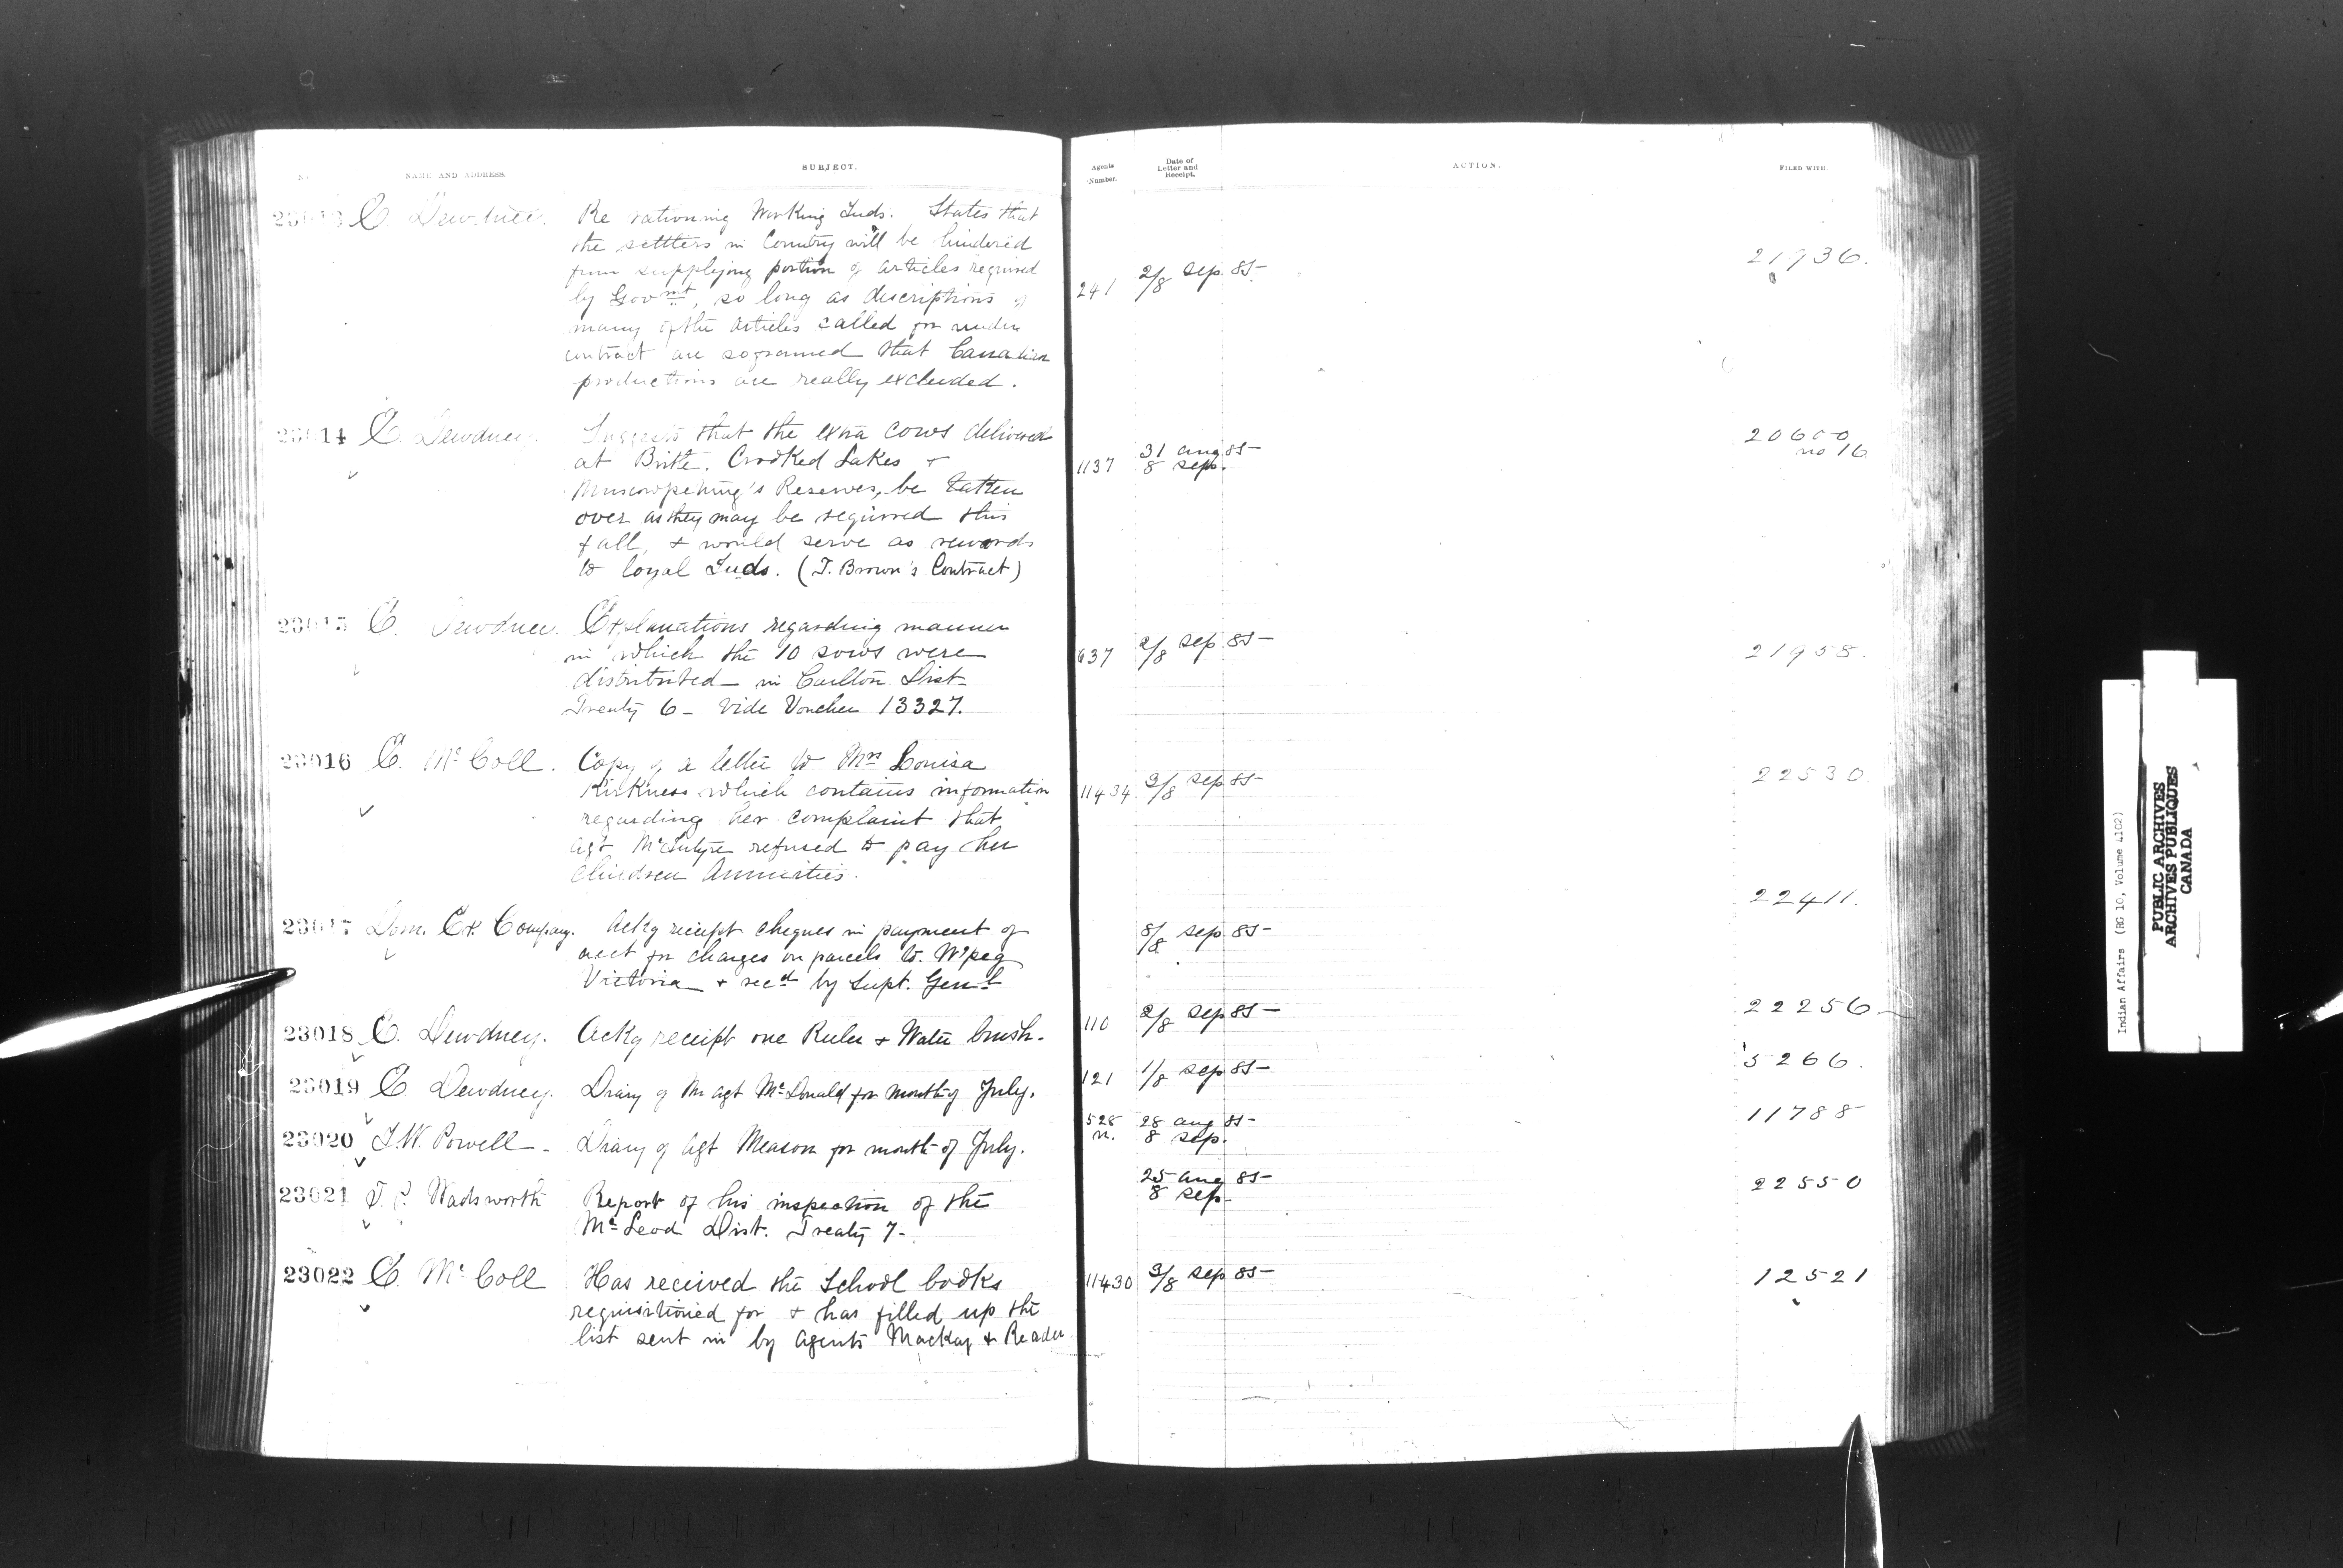 No.
NAME AND ADDRESS.
SUBJECT.
Agents Number.
Date of Letter and Receipt.
ACTION.
FILED WITH.
23013 E. Dewdney. Re rationing Working Inds. States that
the settlers in Country will be hindered
from supplying portion of articles required
by Govmt, so long as descriptions of
many of the articles called for under
contract are so framed that Canadian
productions are really excluded.
241 2/8 Sep 85 21936.
23014 E. Dewdney. Suggests that the extra cows delivered
at Birtle, Crooked Lakes +
Muscowpetung's Reserves, be taken
over as they may be required this
fall, + would serve as rewards
to loyal Inds. (T. Brown's Contract)
1137 31 aug 85 20600
8 Sep. no 16
23015 E. Dewdney. Explanations regarding manner
in which the 10 sows were
distributed in Carlton Dist
Treaty 6 - Vide Voucher 13327.
637 2/8 Sep 85 21958.
23016 E. McColl. Copy of a letter to Mrs Louisa
Kirkness which contains information
regarding her complaint that
agt McIntyre refused to pay her
children Annuities.
11434 3/8 Sep 85 22530
23017 Dom. Ex. Company. Ackg receipt cheques in payment of
acct for charges on parcels to W'peg
Victoria + recd by Supt. Genl
8/8 Sep 85 22411.
23018 E. Dewdney. Ackg receipt one Ruler + Water brush.
110 2/8 Sep 85 22256
23019 E. Dewdney. Diary of Mr agt McDonald for month of July.
121 1/8 Sep 85 5266.
23020 I.W. Powell - Diary of Agt Meason for month of July.
528 28 aug 85 11788
n. 8 Sep.
23021 T.P. Wadsworth Report of his inspection of the
McLeod Dist. Treaty 7.
25 aug 85 22550
8 Sep.
23022 E. McColl Has received the School books
requisitioned for + has filled up the
list sent in by agents Mackay + Reader
11430 3/8 Sep 85 12521
Indian Affairs (RG 10, Volume 4102)
PUBLIC ARCHIVES
ARCHIVES PUBLIQUES
CANADA